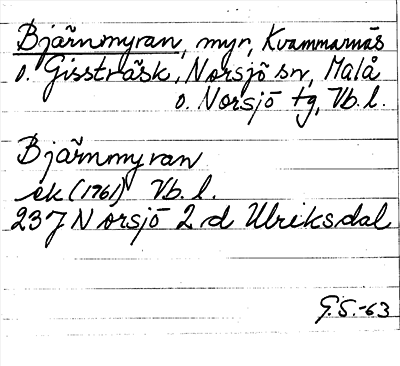 Bjärnmyran, myr, Kvammarnäs
o. Gissträsk, Norsjö sn, Malå
o. Norsjö tg, Vb. l.
Bjärnmyran
ek (1961) Vb. l.
237 Norsjö 2 d Ulriksdal
G.S.-63